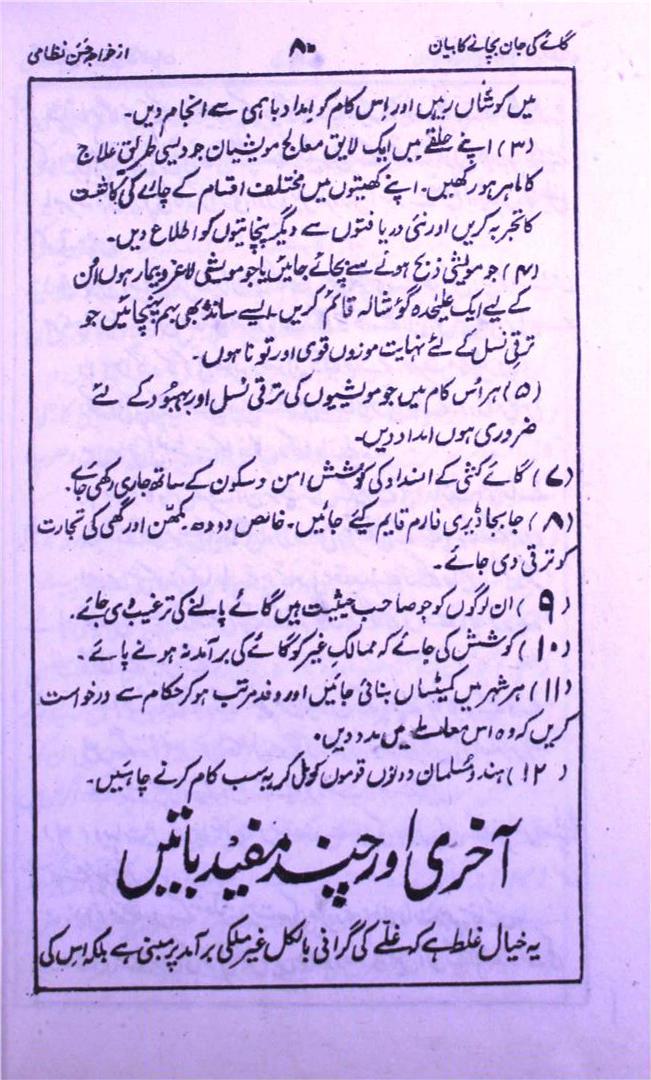 گائے کی جان بچانے کا بیان ۸۰ از خواجہ حسن نظامی
میں کوشاں رہیں اور اس کام کو امداد باہمی سے انجام دیں۔
(۳) اپنے حلقے میں ایک لایق معالج مویشیان جو دیسی طریق علاج
کا ماہر ہو رکھیں۔ اپنے کھیتوں میں مختلف اقسام کے چارے کی کاشت
کا تجربہ کریں اور نئی دریافتوں سے دیگر پنچایتوں کو اطلاع دیں۔
(۴) جو مویشی ذبح ہونے سے بچائے جائیں یا جو مویشی لاغر و بیمار ہوں ان
کے لیے ایک علیحدہ گؤشالہ قائم کریں۔ ایسے سانڈ بھی بہم پہنچائیں جو
ترقی نسل کے لئے نہایت موزوں قوی اور توانا ہوں۔
(۵) ہر اس کام میں جو مویشیوں کی ترقی نسل اور بہبود کے لئے
ضروری ہوں امداد دیں۔
(۷) گائے کشی کے انسداد کی کوشش امن و سکون کے ساتھ جاری رکھی جائے۔
(۸) جابجا ڈیری فارم قایم کیئے جائیں۔ خالص دودھ۔ مکھّن اور گھی کی تجارت
کو ترقی دی جائے۔
(۹) ان لوگوں کو جو صاحب حیثیت ہیں گائے پالنے کی ترغیب دی جائے۔
(۱۰) کوشش کی جائے کہ ممالک غیر کو گائے کی برآمد نہ ہونے پائے۔
(۱۱) ہر شہر میں کمیٹیاں بنائی جائیں اور وفد مرتب ہو کر حکام سے درخواست
کریں کہ وہ اس معاملہ میں مدد دیں۔
(۱۲) ہندو مسلمان دونوں قوموں کو مل کر یہ سب کام کرنے چاہئیں۔
آخری اور چند مفید باتیں
یہ خیال غلط ہے کہ غلے کی گرانی بالکل غیر ملکی برآمد پر مبنی ہے بلکہ اس کی